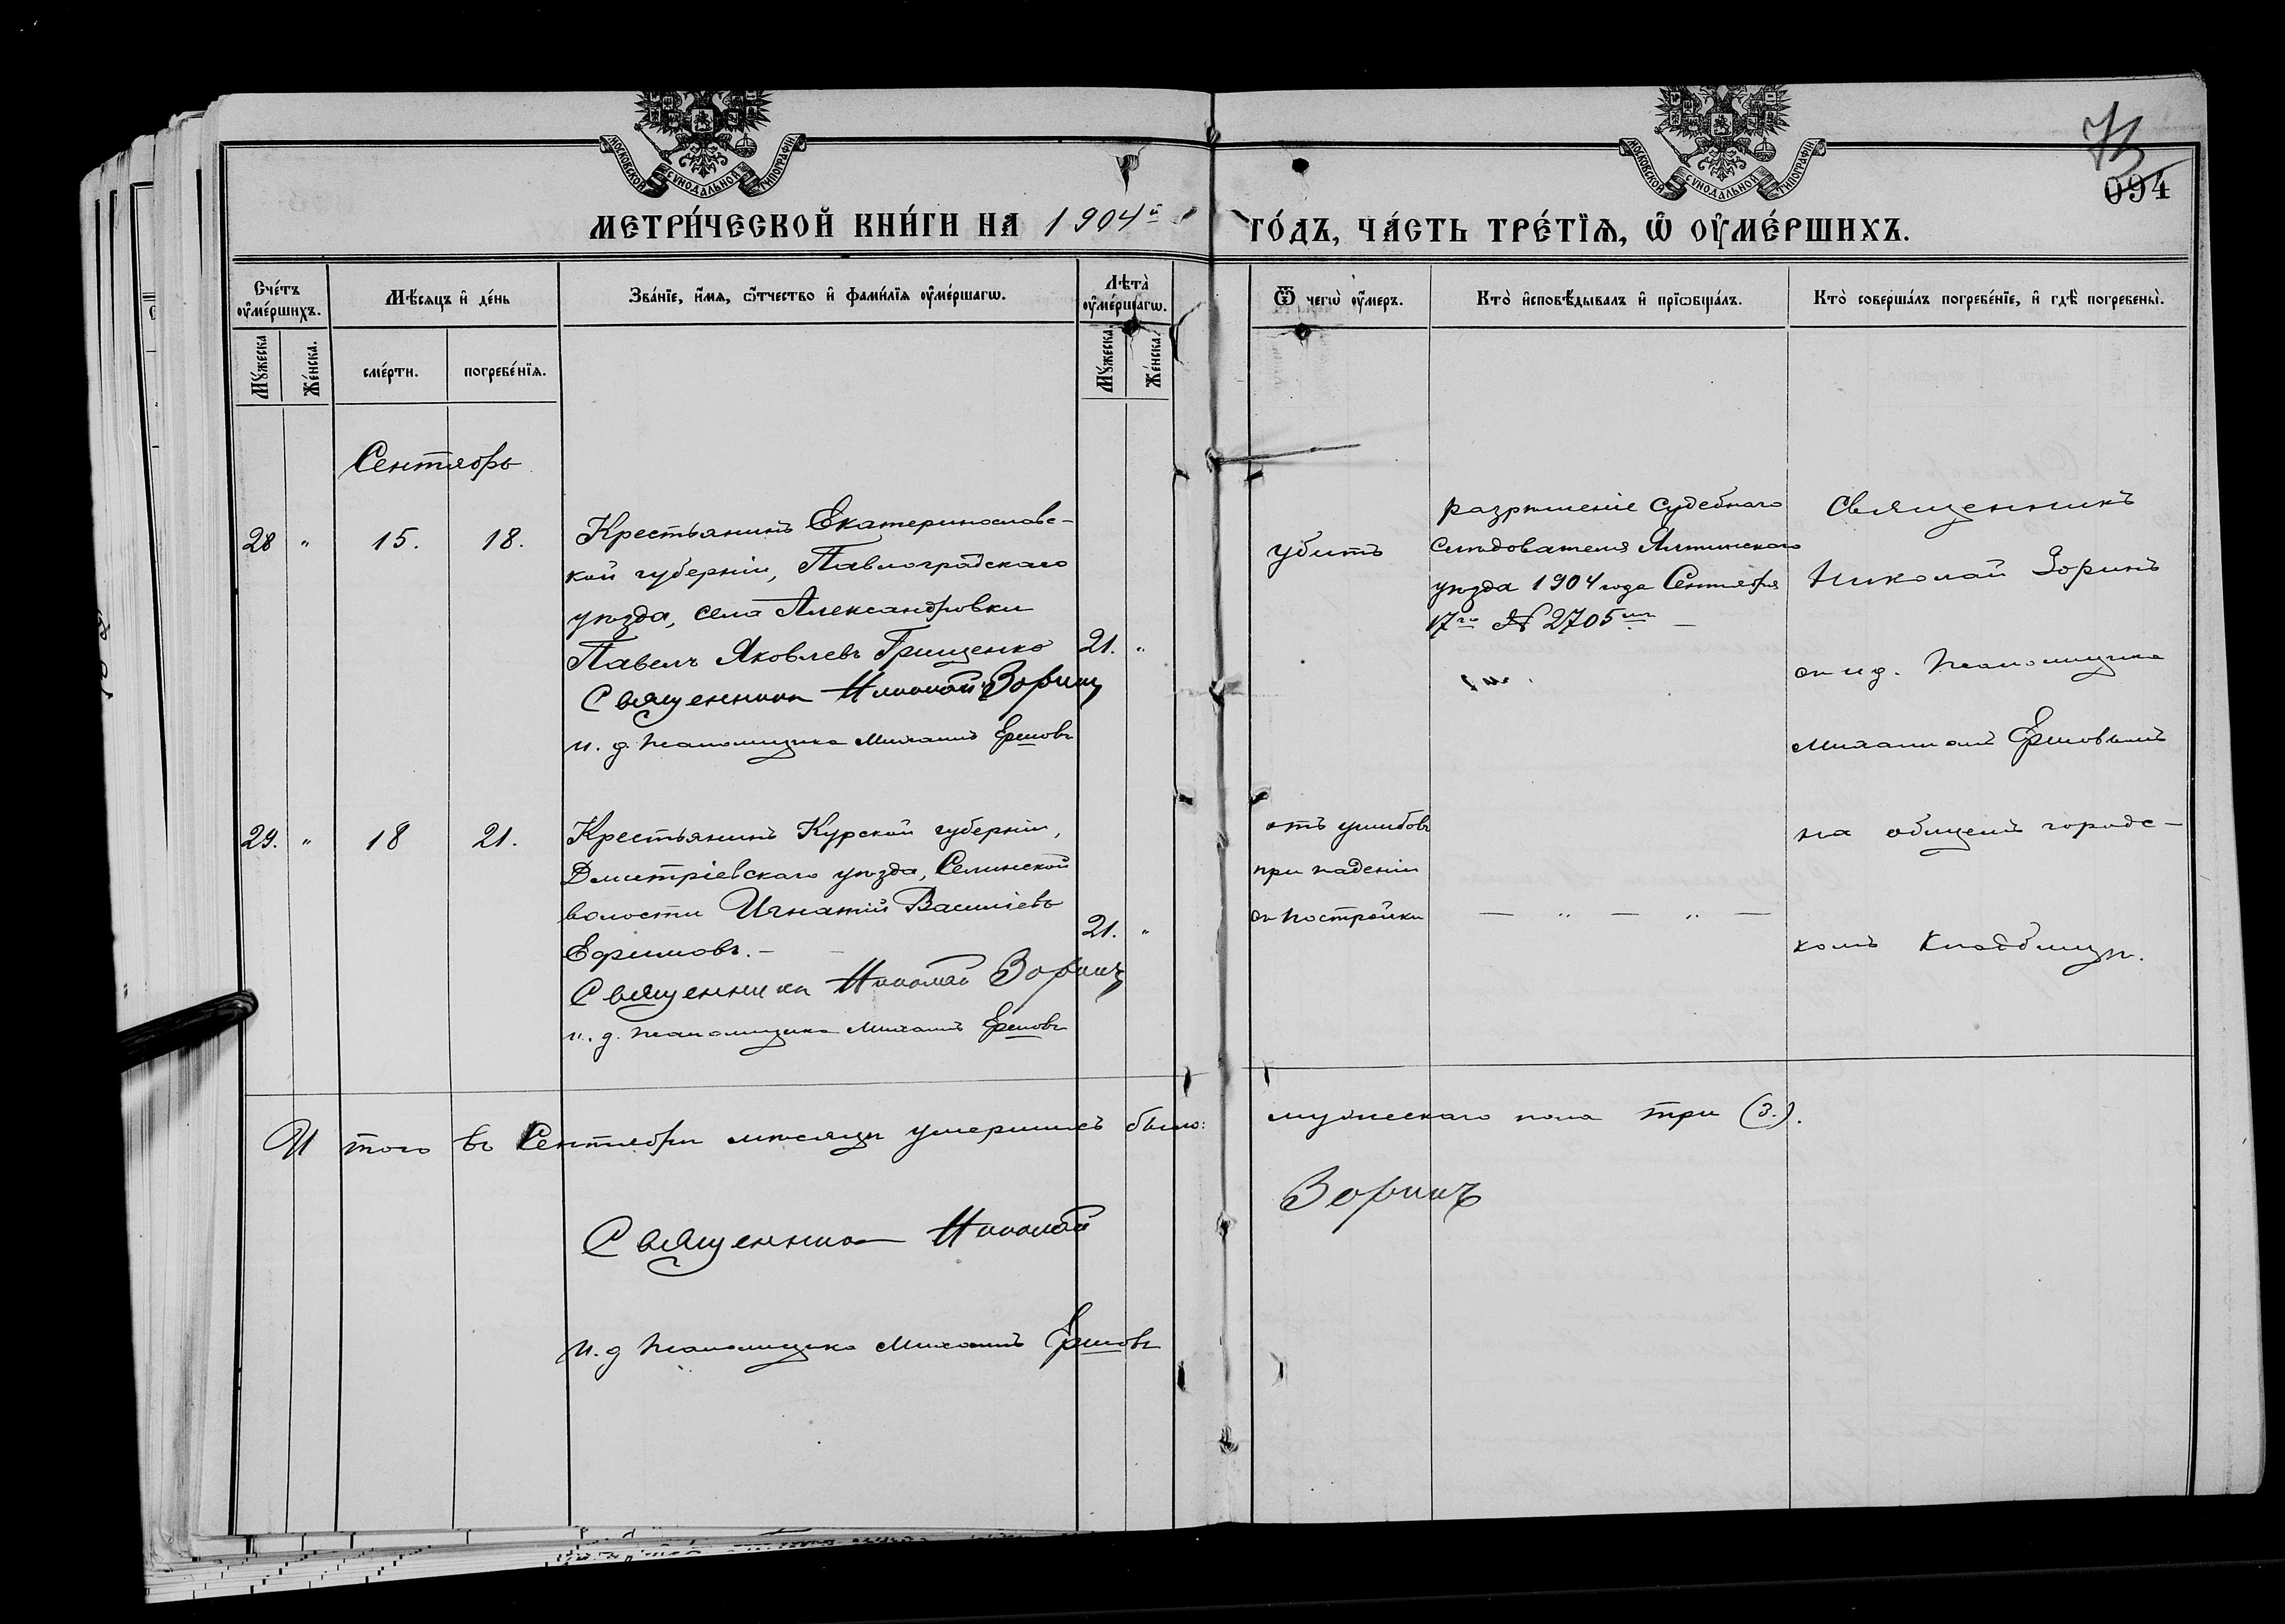 МОСКОВСКОЙ СУНОДАЛЬНОЙ ТИПОГРАФІИ
МОСКОВСКОЙ СУНОДАЛЬНОЙ ТИПОГРАФІИ
094
МЕТРИ́ЧЕСКОЙ КНИ́ГИ НА 1904й ГО́ДЪ, ЧА́СТЬ ТРЕ́ТІѦ, Ѡ҆ ОУ҆МЕ́РШИХЪ.
Сче́тъ оу҆ме́ршихъ.
Мѣ́сяцъ и҆ де́нь
Зва́нїе, и҆́мя, ѻ҆́тчество и҆ фами́лїя оу҆ме́ршагѡ.
Лѣта̀ оу҆ме́ршагѡ.
Ѿ чегѡ̀ оу҆́меръ.
Кто̀ и҆сповѣ́дывалъ и҆ прїѡбща́лъ.
Кто̀ соверша́лъ погребе́нїе, и҆ гдѣ̀ погребены̀.
Мꙋ́жеска
Же́нска.
сме́рти.
погребе́нїя.
Мꙋ́жеска.
Же́нска.
Сентябрь
28 " 15. 18.
Крестьянинъ Екатеринославс-
кой губерніи, Павлоградскаго
уѣзда, села Александровки
Павелъ Яковлевъ Грищенко 21. "
Священникъ Николай Зоринъ
и. д. псаломщика Михаилъ Ершовъ
убитъ
разрѣшеніе Судебнаго
Слѣдователя Ялтинскаго
уѣзда 1904 года Сентября
17го № 2705мъ —
Священникъ
Николай Зоринъ
съ и д. псаломщика
Михаиломъ Ершовымъ
на общемъ городс-
комъ кладбищѣ.
29. " 18 21.
Крестьянинъ Курской губерніи,
Дмитріевскаго уѣзда, Селинской
волости Игнатій Василіевъ
Ефимовъ. — 21. "
Священникъ Николай Зоринъ
и. д. псаломщика Михаилъ Ершовъ
отъ ушибовъ
при паденіи
съ постройки
— " — " —
И того въ Сентябрѣ мѣсяцѣ умершихъ было: мужескаго пола три (3.).
Священникъ Николай Зоринъ
и. д псаломщика Михаилъ Ершовъ